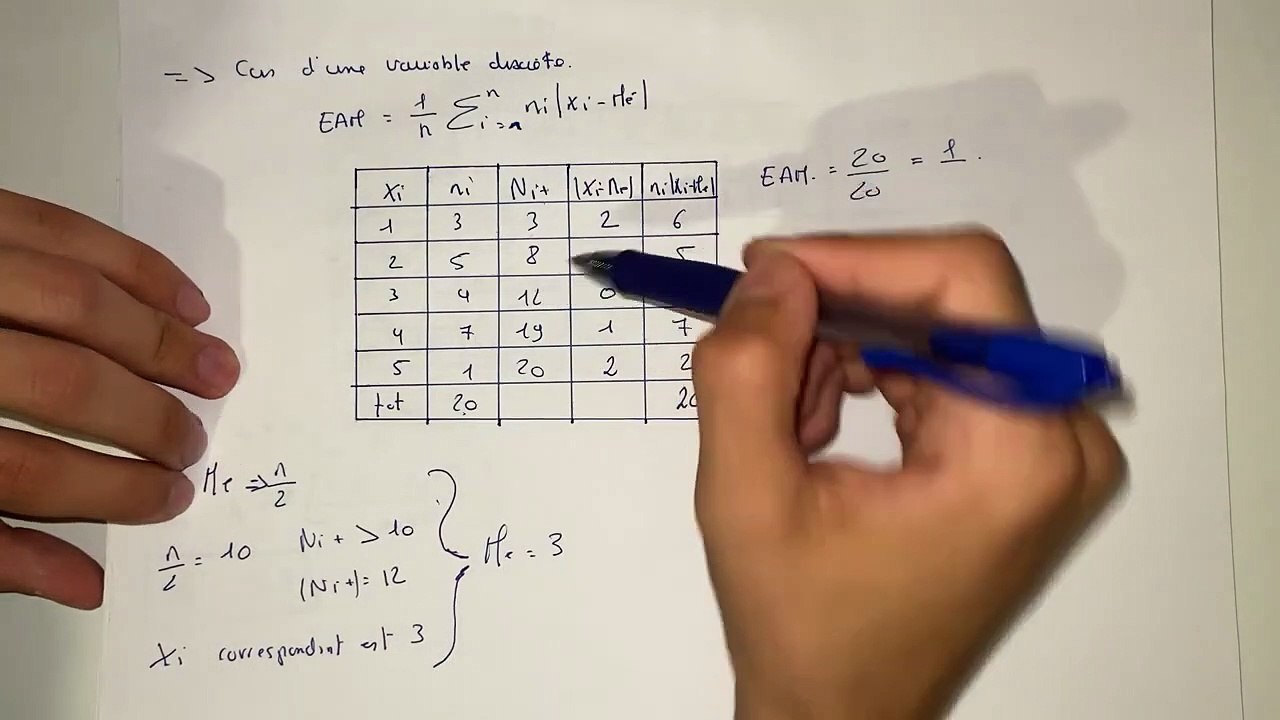 => Cas d'une variable discrète.
EAM = 1/n Σ i=1 n ni|xi-Me|
EAM. = 20/20 = 1.
xi ni Ni+ |xi-Me| ni|xi-Me|
1 3 3 2 6
2 5 8 5
3 4 12 0
4 7 19 1 7
5 1 20 2 2
tot 20 20
Me => n/2
n/2 = 10 Ni+ > 10
(Ni+) = 12
Me = 3
Xi correspondant est 3